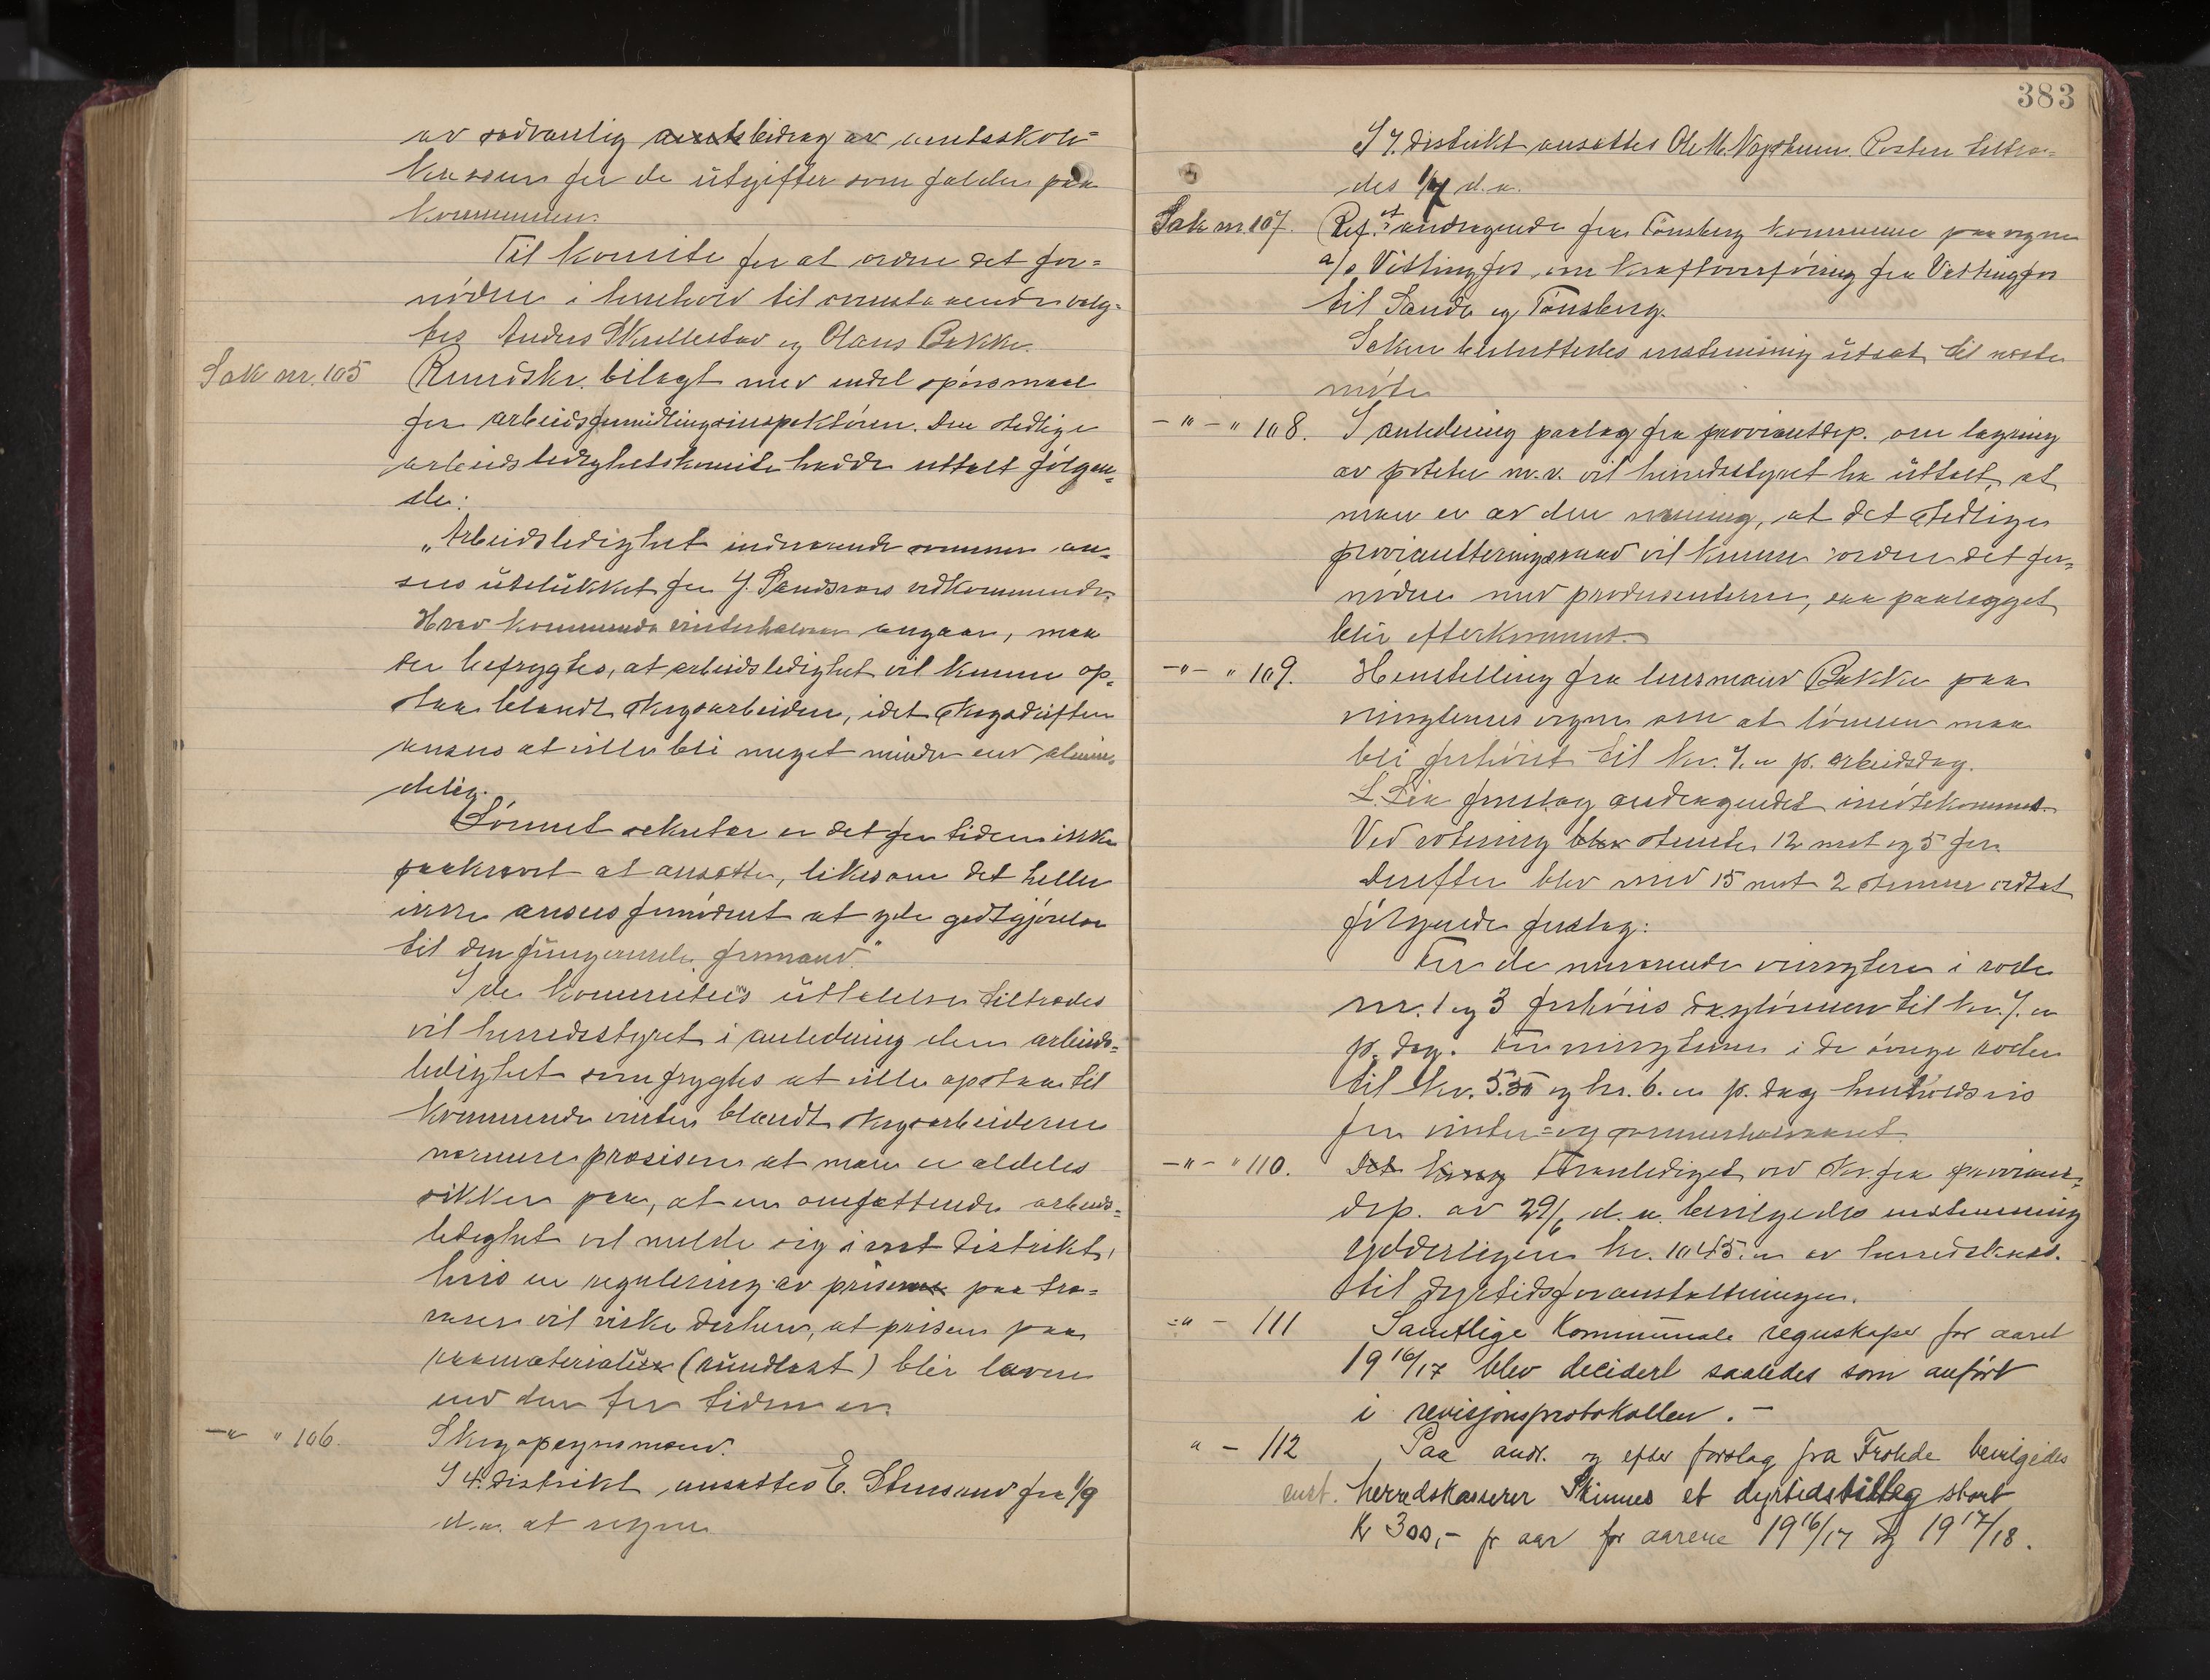 av sedvanlig amtsbidrag av amtsskole=
kassen for de utgifter som falder paa
kommunen.
Til komite for at ordne det for=
nödne i henhold til ovenstaaende valg=
tes Anders Skjellestad og Olaus Bakke.
Sak nr. 105 Rundskr. bilagt med endel spörsmaal
fra arbeidsformidlingsinspektören. Den stedlige
arbeidsledighetskomite hadde uttalt fölgen=
de:
„Arbeidsledighet indeværende sommer an=
sees utelukket for Y. Sandsvær vedkommende.
Hvad kommende vinterhalvaar angaar, maa
der befrygtes, at arbeidsledighet vil kunne op=
staa blandt skogsarbeidere, idet skogsdriften
ansees at ville bli meget mindre end almin=
delig.
Lönnet sekretær er det for tiden ikke
paakrævet at ansætte, likesom det heller
ikke ansees fornödent at yde godtgjörelse
til den fungerende formand."
I det komiteens uttalelse tiltrædes
vil herredsstyret i anledning den arbeids=
ledighet som frygtes at ville opstaa til
kommende vinter blandt skogsarbeiderne
nærmere præsisere at man er aldeles
sikker paa, at en omfattende arbeids=
ledighet vil melde sig i vort distrikt,
hvis en regulering av prisene paa træ=
varer vil virke derhen, at prisen paa
raamaterialier (rundlast) blir lavere
end den for tiden er.
—„— „ 106. Skogopsynsmænd.
I 4. distrikt ansattes E. Stensund fra 1/9
d.a. at regne.
383
I 7. distrikt ansattes Ole M. Posten tiltræ=
des 1/7 d.a.
Sak nr. 107. Ref. et andragende fra Tönsberg kommune paa vegne
a/s Vittingfos, om kraftoverföring fra Vittingfos
til Sande og Tönsberg.
Saken besluttedes enstemmig utsat til næste
möte
—„— „ 108. I anledning paalæg fra proviantdep. om lagring
av poteter m.v. vil herredsstyret ha uttalt, at
man er av den mening, at det stedlige
provianteringsraad vil kunne ordne det for=
nödne med producenterne, saa paalægget
blir efterkommet.
—„— „ 109. Henstilling fra lensmand Bakke paa
veivogternes vegne om at lönnen maa
bli forhöiet til kr. 7.00 p. arbeidsdag.
L. Lia foreslog andragendet imötekommet.
Ved votering blev stemte 12 mot og 5 for.
Derefter blev med 15 mot 2 stemmer vedtat
fölgende forslag:
For de nuværende veivogtere i rode
nr. 1 og 3 forhöies daglönnen til kr. 7.00
p. dag. For veivogterne i de övrige roder
til kr. 5.50 og kr. 6.00 p. dag henholdsvis
for vinter= og sommerhalvaaret.
—„— „ 110. Foranlediget ved skr. fra proviant=
dep. av 29/6 d.a. bevilgedes enstemmig
yderligere kr. 1045.00 av herredskas.
til dyrtidsforanstaltninger.
=„ — 111 Samtlige Kommunale regnskaper for aaret
1916/17 blev decidert saaledes som anfört
i revisjonsprotokollen. —
„ — 112 Paa andr. og efter forslag fra Frolide bevilgedes
enst. herredskasserer Skinnes et dyrtidstillæg stort
Kr 300,— pr aar for aarene 1916/17 og 1917/18.